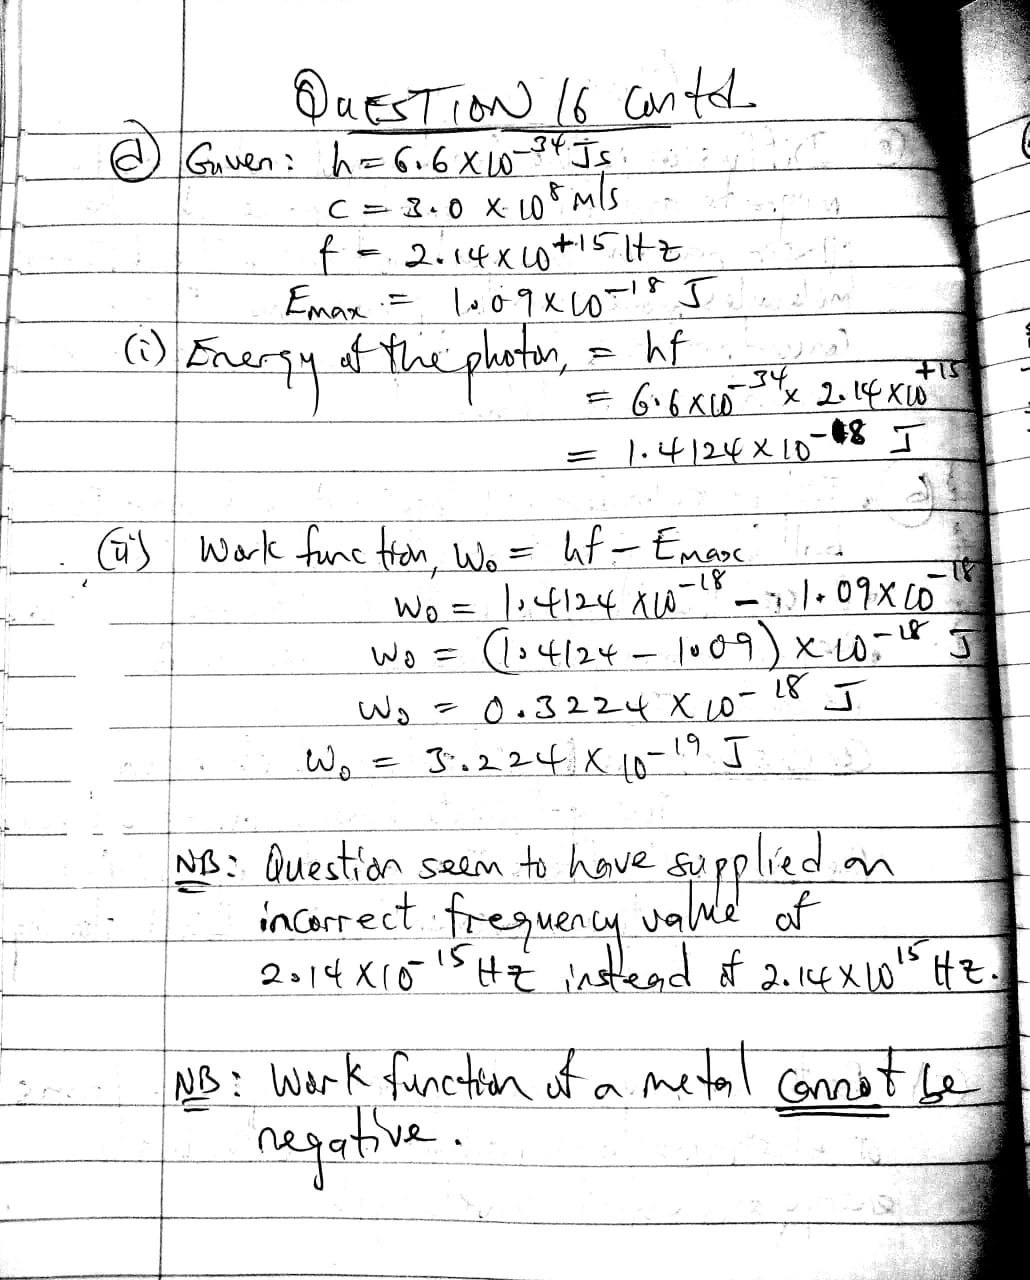 QUESTION 16 contd
(d) Given: h = 6.6 × 10⁻³⁴ Js
c = 3.0 × 10⁸ m/s
f = 2.14 × 10⁺¹⁵ Hz
Emax = 1.09 × 10⁻¹⁸ J
(i) Energy of the photon, = hf
= 6.6 × 10⁻³⁴ × 2.14 × 10⁺¹⁵
= 1.4124 × 10⁻¹⁸ J
(ii) Work function, W₀ = hf – Emax
W₀ = 1.4124 × 10⁻¹⁸ – 1.09 × 10⁻¹⁸
W₀ = (1.4124 – 1.09) × 10⁻¹⁸ J
W₀ = 0.3224 × 10⁻¹⁸ J
W₀ = 3.224 × 10⁻¹⁹ J
NB: Question seem to have supplied an
incorrect frequency value of
2.14 × 10⁻¹⁵ Hz instead of 2.14 × 10¹⁵ Hz.
NB: Work function of a metal cannot be
negative.